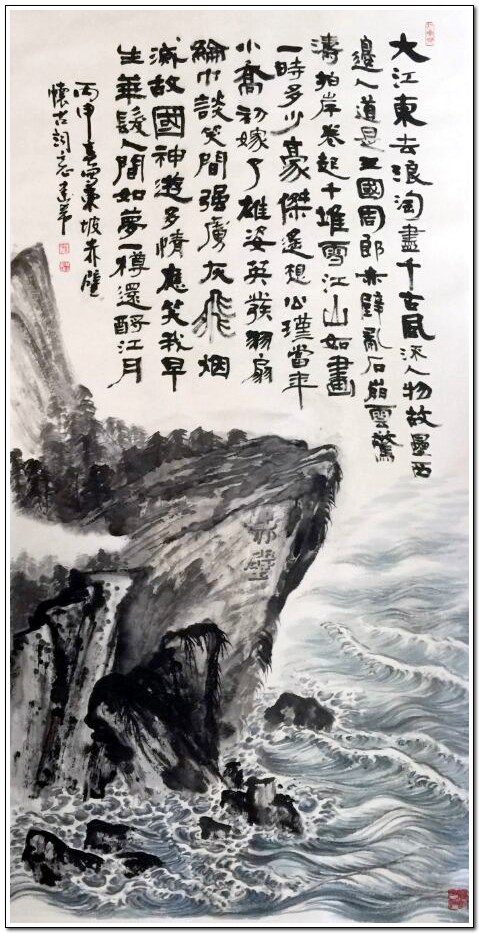 大江東去浪淘盡千古風流人物故壘西
邊人道是三國周郎赤壁亂石崩雲驚
濤拍岸卷起千堆雪江山如畫
一時多少豪傑遙想公瑾當年
小喬初嫁了雄姿英發羽扇
綸巾談笑間强虜灰飛烟
滅故國神遊多情應笑我早
生華髮人間如夢一樽還酹江月
丙申寫東坡赤壁
懷古詞意
赤壁